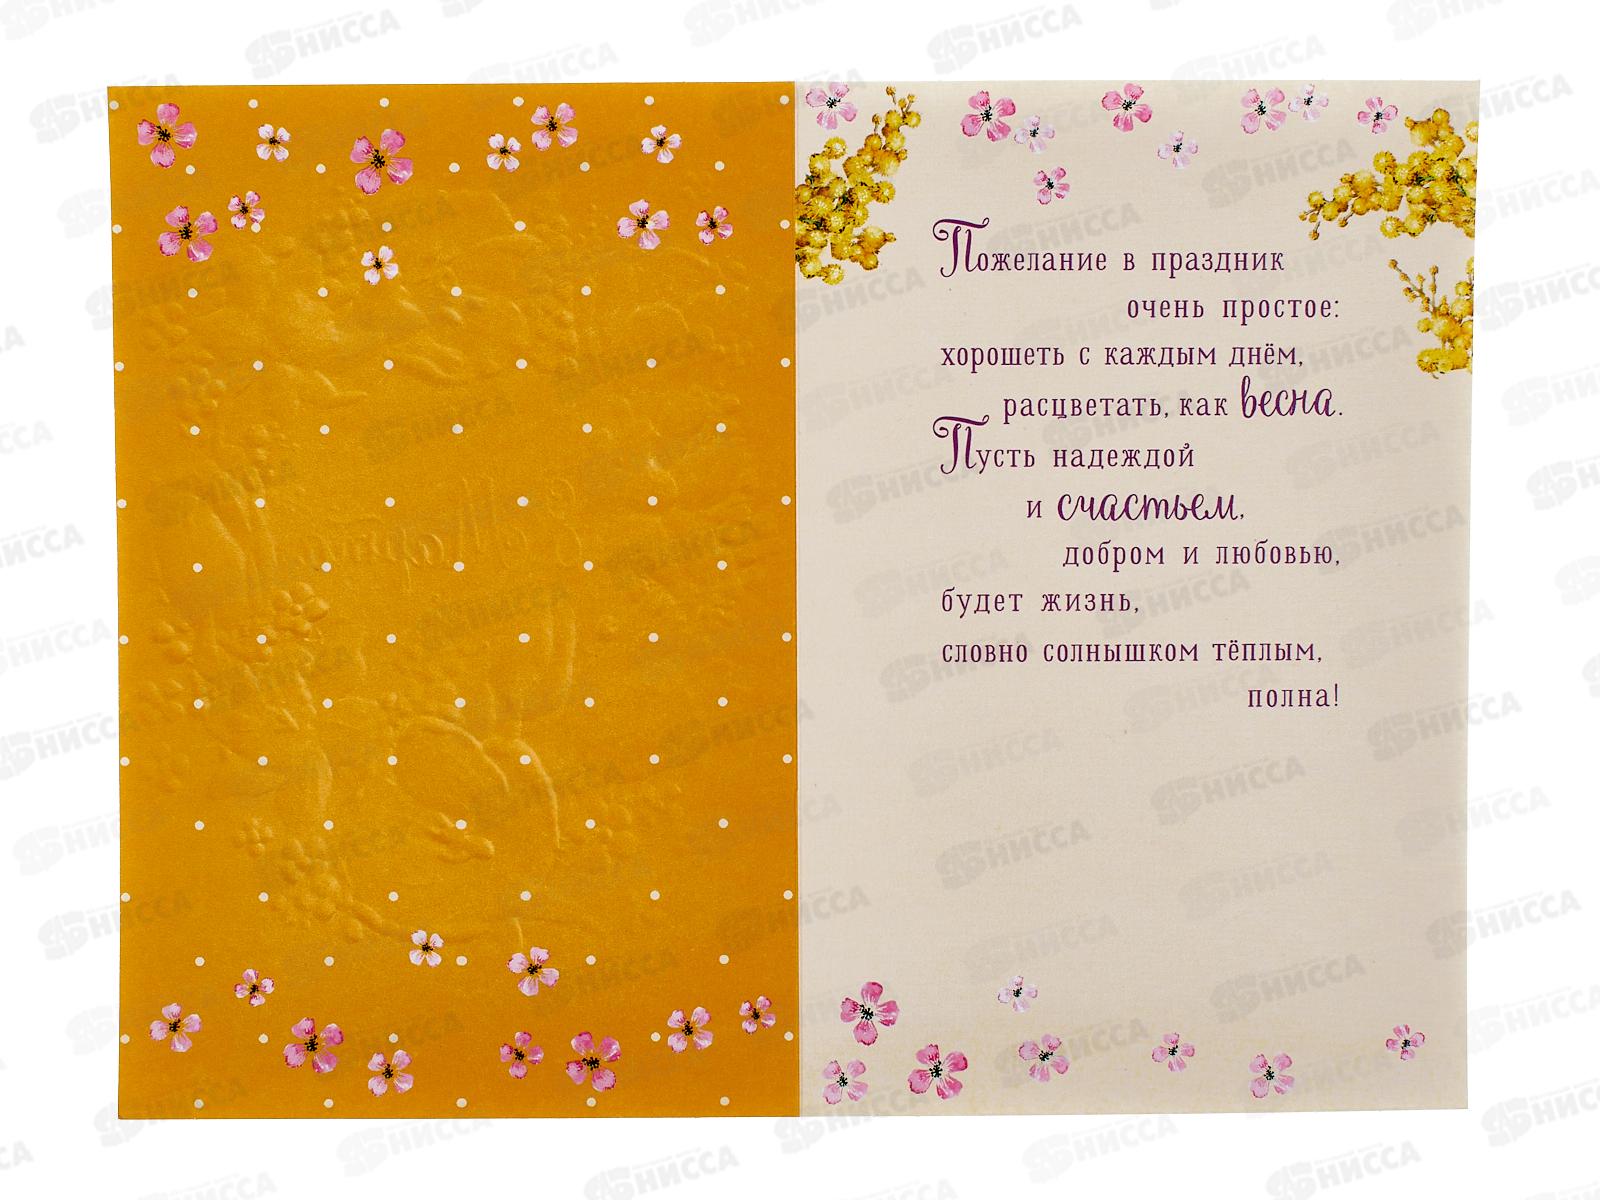 Пожелание в праздник
очень простое:
хорошеть с каждым днём,
расцветать, как весна.
Пусть надеждой
и счастьем,
добром и любовью,
будет жизнь,
словно солнышком тёплым,
полна!
НИССА